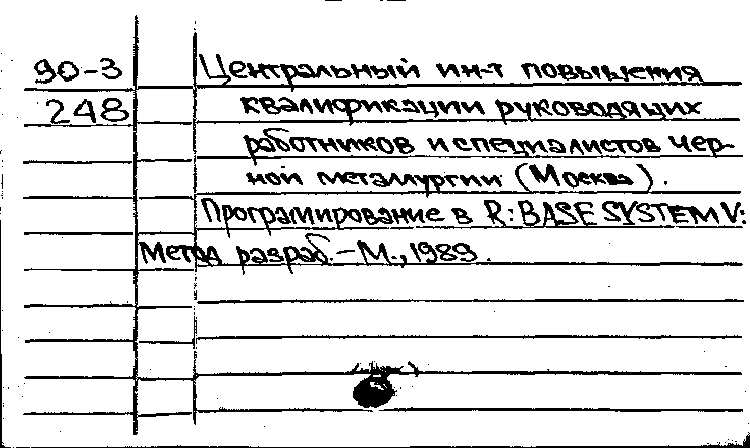 90-3 Центральный ин-т повышения
248 квалификации руководящих
работников и специалистов чер-
ной металлургии (Москва).
Програмирование в R:BASE SYSTEM V:
Метод разраб.-М., 1989.